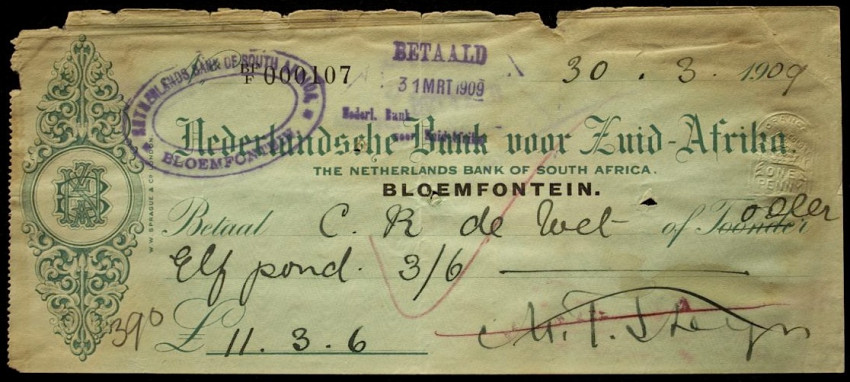 NETHERLANDS BANK OF SOUTH AFRICA
BLOEMFONTEIN
BF/F 000107
BETAALD
31 MRT 1909
Nederl. Bank
voor Zuid-Afrika
30 . 3. 1909
Nederlandsche Bank voor Zuid-Afrika.
THE NETHERLANDS BANK OF SOUTH AFRICA.
BLOEMFONTEIN.
ONE
PENNY
W.W. SPRAGUE & Co LONDON
Betaal C. R de Wet of Toonder order
Elf pond. 3/6
390
£ 11. 3. 6
M. T. Steyn